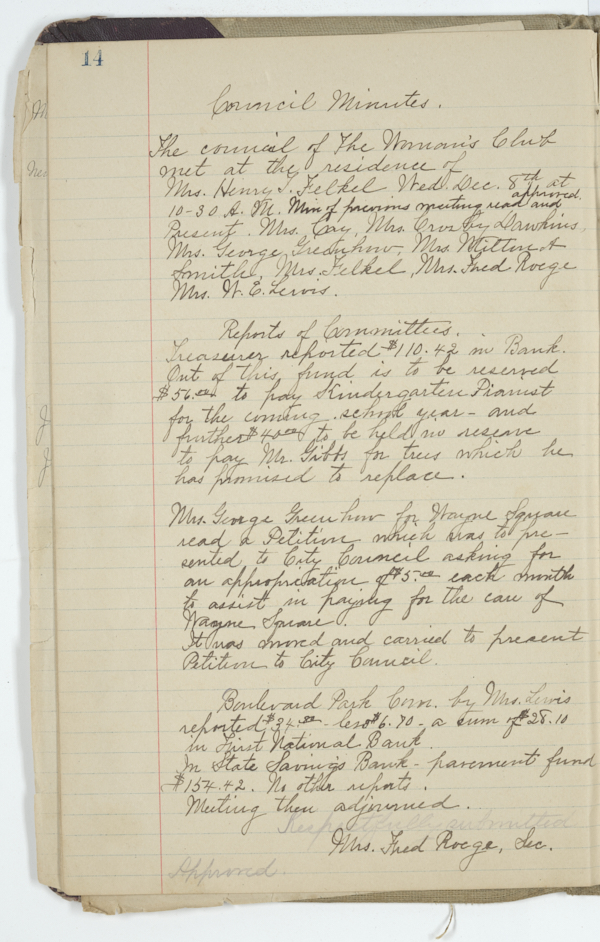 14
Council Minutes.
The council of The Woman's Club
met at the residence of
Mrs. Henry T. Felkel Wed. Dec. 8th at
10-30 A. M. Min of previous meeting read and approved.
Present. Mrs. Cay, Mrs. Crosby Dawkins,
Mrs. George Greenhow, Mrs. Milton A
Smith, Mrs. Felkel, Mrs. Fred Roege
Mrs. W. E. Lewis.
Reports of Committees.
Treasurer reported $110.42 in Bank.
Out of this fund is to be reserved
$56.00 to pay Kindergarten Pianist
for the coming school year - and
further $40.00 to be held in reserve
to pay Mr. Gibbs for trees which he
has promised to replace.
Mrs. George Greenhow for Wayne Square
read a Petition which was to pre-
sented to City Council asking for
an appropriation of $5.00 each month
to assist in paying for the care of
Wayne Square.
It was moved and carried to present
Petition to City Council.
Boulevard Park Com. by Mrs. Lewis
reported $34.80 - less $6.70 - a sum of $28.10
in First National Bank.
In State Savings Bank - pavement fund
$154.42. No other reports.
Meeting then adjourned.
Respectfully submitted
Mrs. Fred Roege, Sec.
Approved.